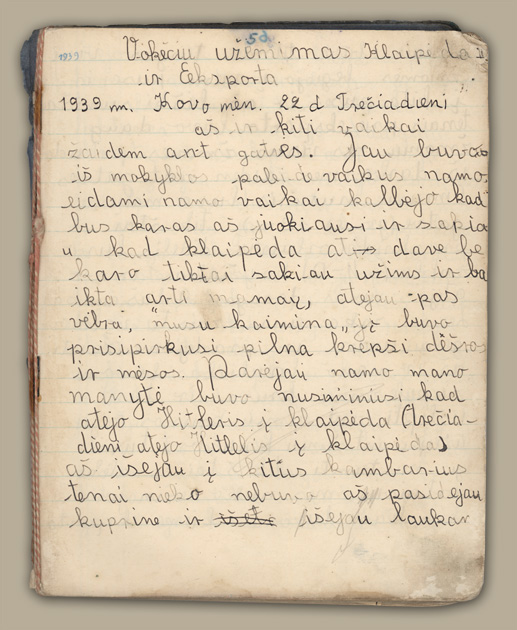 58
1939
Vokėčiu užėmimas Klaipėda
ir Eksporta
1939 m. Kovo mėn. 22 d Trečiadieni
aš ir kiti vaikai
žaidem ant gatvės. Jau buvo
iš mokyklos paleisti vaikus namo
eidami namo vaikai kalbėjo kad
bus karas aš juokiausi ir sakia
u kad klaipėda dave be
karo tiktai sakiau užims ir ba
ikta arti mamai, atejau pas
vėbra, "musu kaimina„ ji buvo
prisipirkusi pilna krepši dešros
ir mėsos. Parėjau namo mano
manytė buvo nusiminusi kad
atejo Hitleris į klaipėda (trečia-
dieni atejo Hitlelis į klaipėda)
aš išejau į kitus kambarius
tenai nieko nebuvo aš pasidejau
kuprine ir išejau laukan